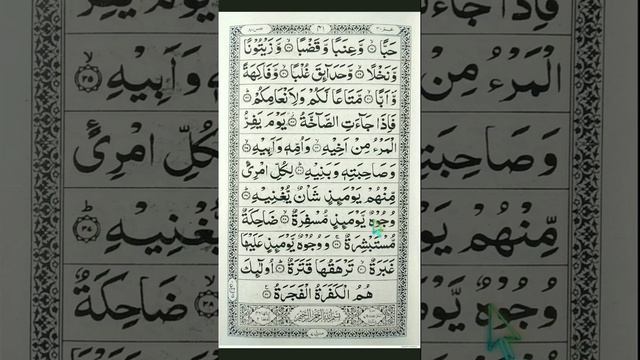 حَبًّا ۙ وَّعِنَبًا وَّقَضْبًا ۙ وَّزَيْتُوْنًا
وَّنَخْلًا ۙ وَّحَدَآئِقَ غُلْبًا ۙ وَّفَاكِهَةً
وَّاَبًّا ۙ مَّتَاعًا لَّكُمْ وَلِاَنْعَامِكُمْ
فَاِذَا جَآءَتِ الصَّآخَّةُ يَوْمَ يَفِرُّ
الْمَرْءُ مِنْ اَخِيْهِ ۙ وَاُمِّهٖ وَاَبِيْهِ ۙ
وَصَاحِبَتِهٖ وَبَنِيْهِ ؕ لِكُلِّ امْرِئٍ
مِّنْهُمْ يَوْمَئِذٍ شَاْنٌ يُّغْنِيْهِ ؕ
وُجُوْهٌ يَّوْمَئِذٍ مُّسْفِرَةٌ ۙ ضَاحِكَةٌ
مُّسْتَبْشِرَةٌ ۚ وَوُجُوْهٌ يَّوْمَئِذٍ عَلَيْهَا
غَبَرَةٌ ۙ تَرْهَقُهَا قَتَرَةٌ ؕ اُولٰٓئِكَ
هُمُ الْكَفَرَةُ الْفَجَرَةُ